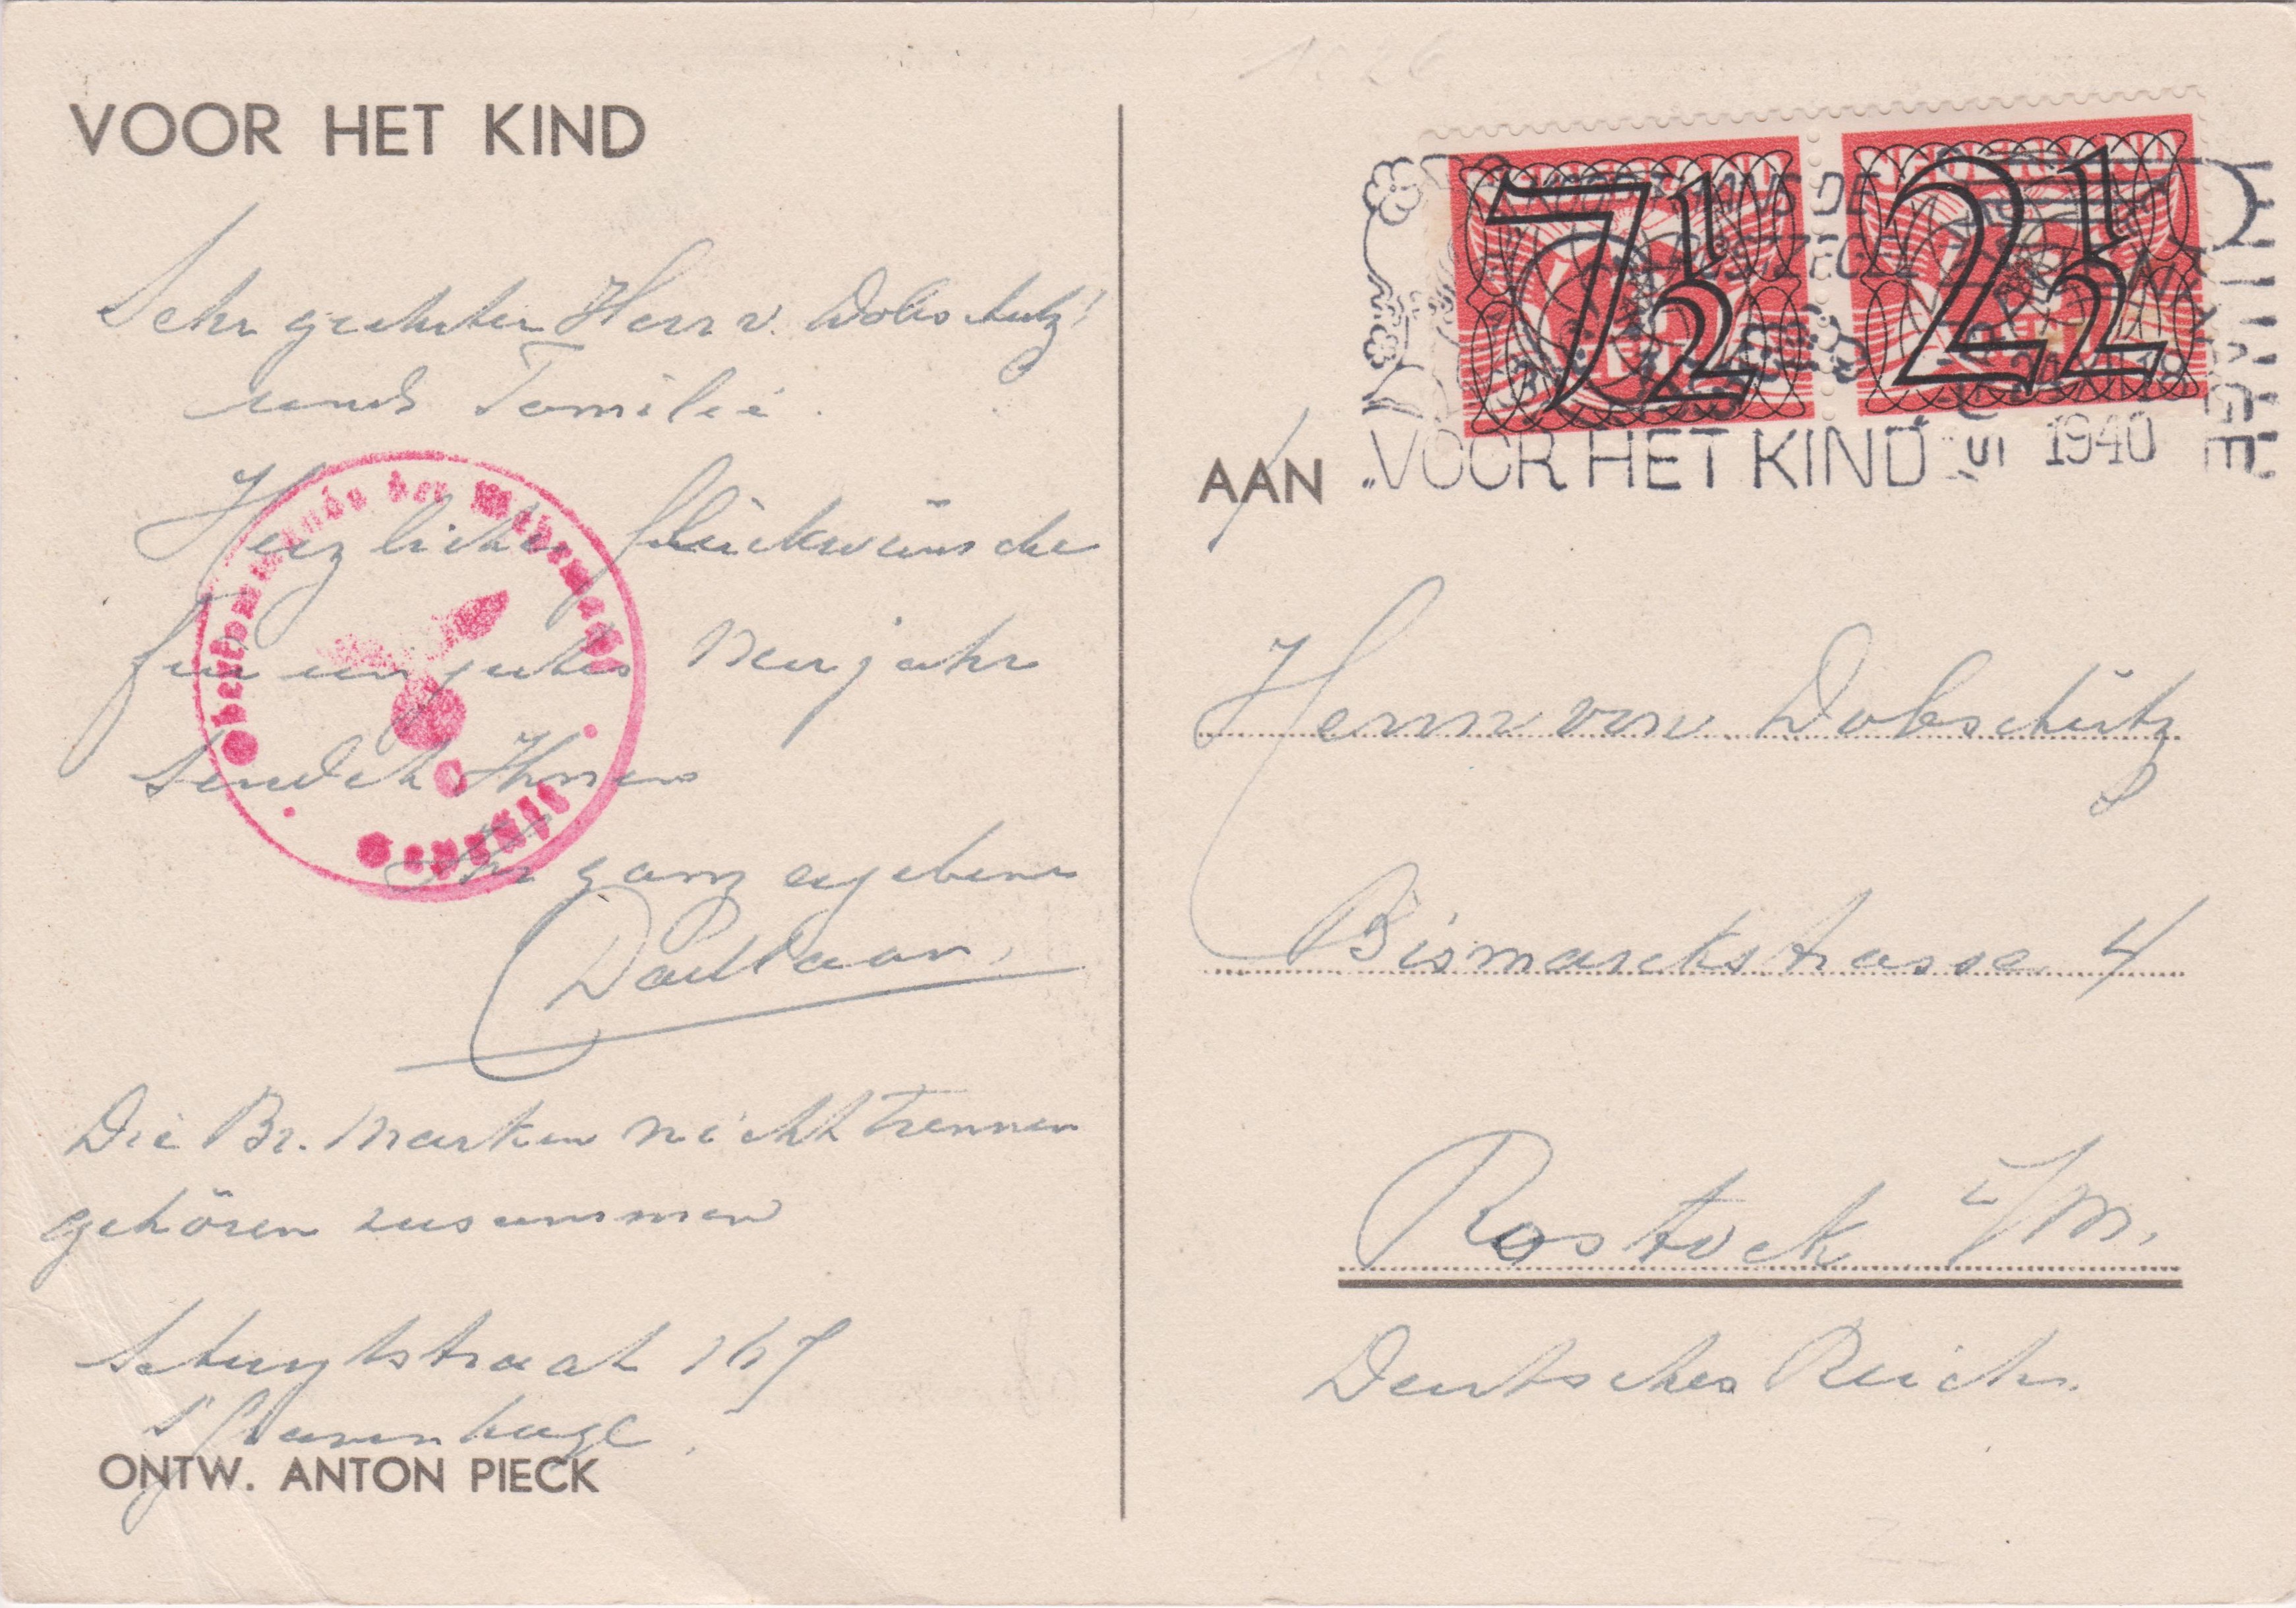 VOOR HET KIND
Sehr geehrter Herr v. Dobschütz!
und Familie.
Herzliche Glückwünsche
für ein gutes Neujahr
sendet Ihnen
Ihr ganz ergebener
Die Br. Marken nicht trennen
gehören zusammen
Schuytstraat 167
s'Gravenhage.
ONTW. ANTON PIECK
Oberkommando der Wehrmacht
Geprüft
7½
2½
POSTZEGELS
"VOOR HET KIND"
1940
AAN
Herrn von Dobschütz
Bismarckstrasse 4
Rostock i/M.
Deutsches Reich.